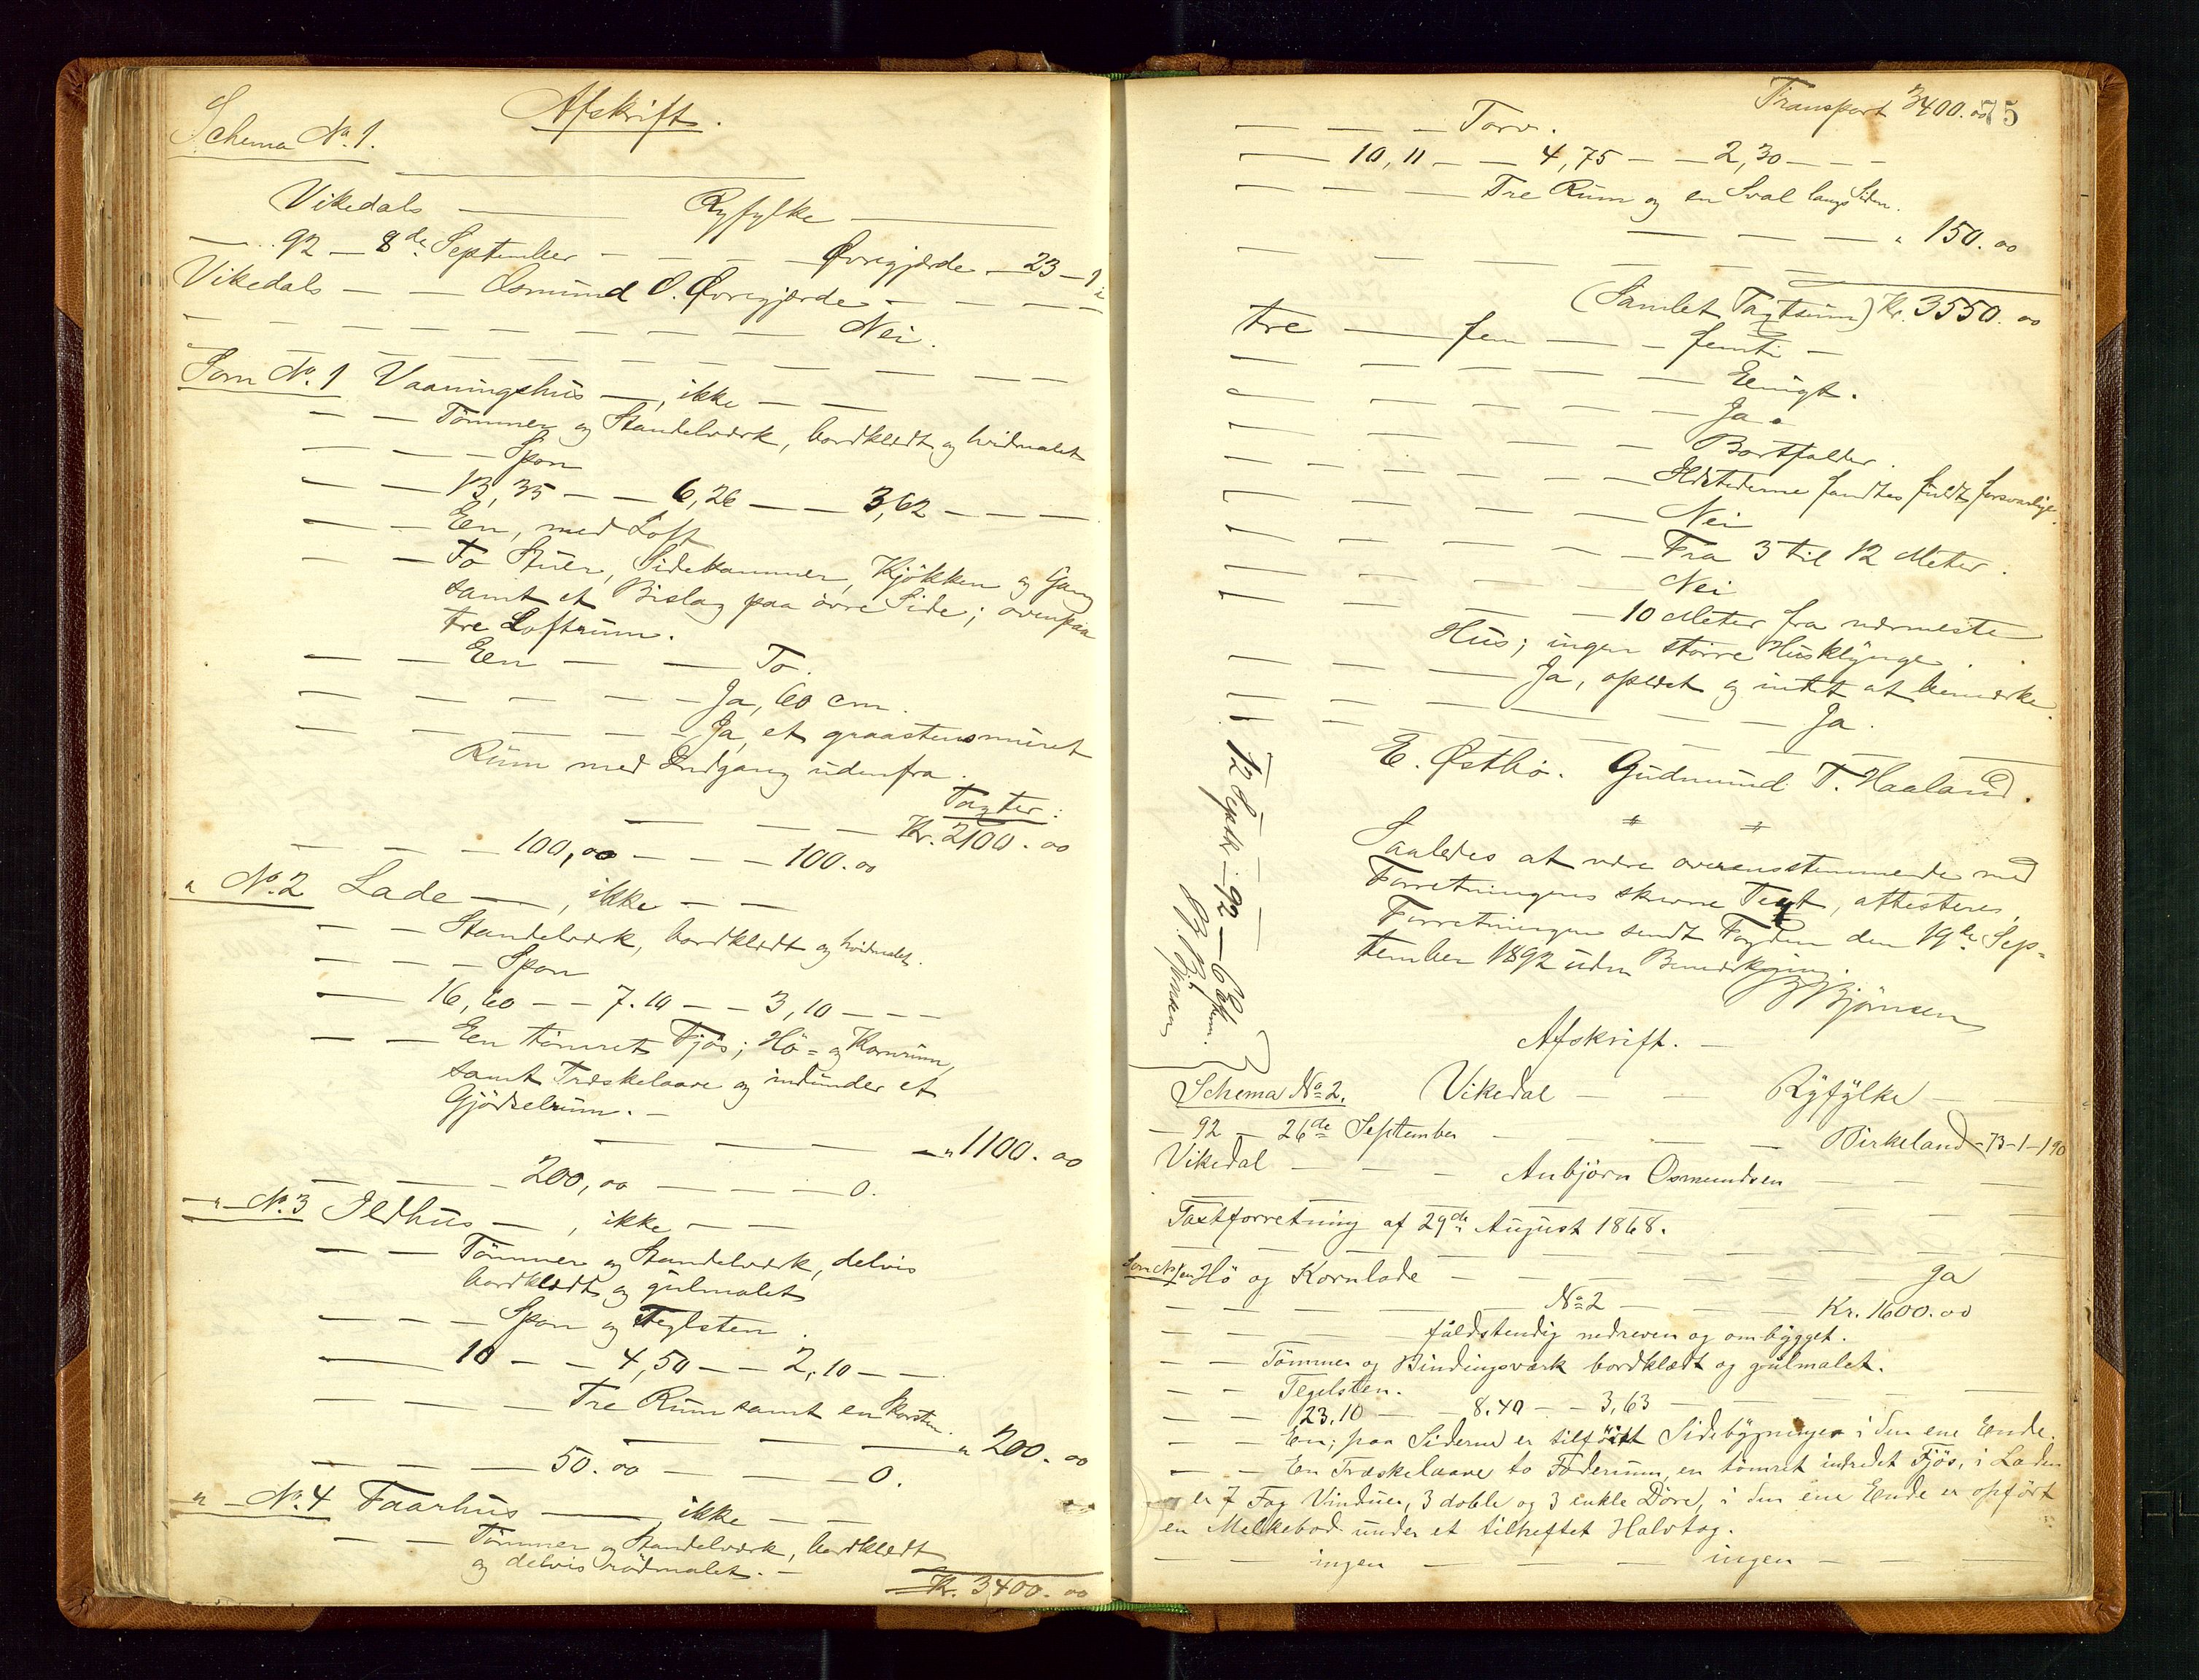 Afskrift.
Schema No. 1.
Vikedals — Ryfylke —
— 92 — 8de September — — — Øvregjærde — 23 — 1
Vikedals — — Osmund O. Øvregjærde — — —
— — — — — — — — Nei.
— — — — — — — — —
Som No. 1 Vaaningshus —, ikke — —
— — Tömmer og Standelværk, bordklædt og hvidmalet
— — — Spon
— — 13,35 — — 6,26 — — 3,62 — — —
— — Een, med Loft
— — To Stuer, Sidekammer, Kjökken og Gang
samt et Bislag paa övre Side; ovenpaa
tre Loftrum.
— — Een — — To.
— — — — — — Ja, 60 cm.
— — — — — — Ja, et graastensmuret
Rum med Indgang udenfra.
Taxter:
— — — Kr. 2100.00
— — — 100,00 — — — 100.00
" No. 2 Lade —, ikke — —
— — Standelværk, bordklædt og hvidmalet.
— — — Spon
— 16,60 — — 7.10 — — 3,10 — — —
— — Een tömret Fjös; Hö- og Kornrum,
samt Træskelaave og indunder et
Gjödselrum. —
— — — — " 1100.00
— — — 200,00 — — — 0.
" No. 3 Ildhus —, ikke — —
— — Tömmer og Standelværk, delvis
bordklædt og gulmalet
— — — Spon og Teglsten.
— 10 — — 4,50 — — 2,10 — —
— — — — Tre Rum samt en Skorsten.
— — — " 200.00
— — — 50.00 — — — 0.
" No. 4 Faarhus — ikke — —
— — Tömmer og Standelværk, bordklædt
og delvis rödmalet. —
Kr. 3400.00
Transport 3400.00
75
— — — Torv.
— 10,11 — — 4,75 — — 2,30 — — —
— — — — Tre Rum og en Sval langs Siden.
— — — " 150.00
— — — — — — — —
(Samlet Taxtsum) Kr. 3550.00
tre — fem — — femti —
— — — — — Eenigt.
— — — — — Ja.
— — — — — Bortfalder.
— — — — — Ildstederne fandtes fuldt forsvarlige.
— — — — — Nei
— — — — — Fra 3 til 12 Meter.
— — — — — Nei
— — — — — 10 Meter fra nærmeste
Hus; ingen större Husklynge.
— — — — Ja, oplæst og intet at bemærke.
— — — — — — Ja.
E. Østbö. Gudmund T. Haaland.
Saaledes at være overensstemmende med
Forretningens skrevne Text, attesteres.
Forretningen sendt Fogden den 19de Sep-
tember 1892 uden Bemærkning.
Bjørnsen
— 12 Septbr. — 92 — 6 Eftm.
Bjørnsen
Afskrift. —
Schema No. 2. Vikedal — — Ryfylke — —
— 92 — 26de September — — — — Birkeland — 73 — 1 — 190
Vikedal — — — Anbjörn Osmundsen — — —
Taxtforretning af 29de August 1868.
Som No. 1 en Hö og Kornlade — — — — — Ja
— — — — — No. 2 — — — Kr. 1600.00
— — — — fuldstendig nedreven og ombygget.
— — Tömmer og Bindingsværk bordklædt og gulmalet.
— — Tegelsten.
— — 23.10 — — 8.40 — — 3,63 — — —
— — En; paa Siderne er tilföiet Sidebygninger i den ene Ende.
— — En Træskelaave to Foderrum, en tömret indredet Fjös, i Laden
er 7 Fag Vinduer, 3 doble og 3 enkle Döre, i den ene Ende er opfört
en Melkebod under et tilheftet Halvtag.
— — ingen — — — — ingen — — —